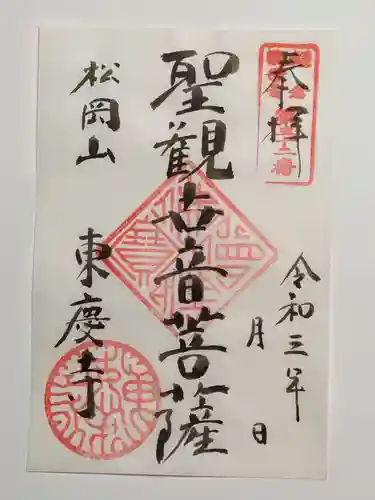 奉拝
令和三年
月 日
聖観世音菩薩
松岡山
東慶寺